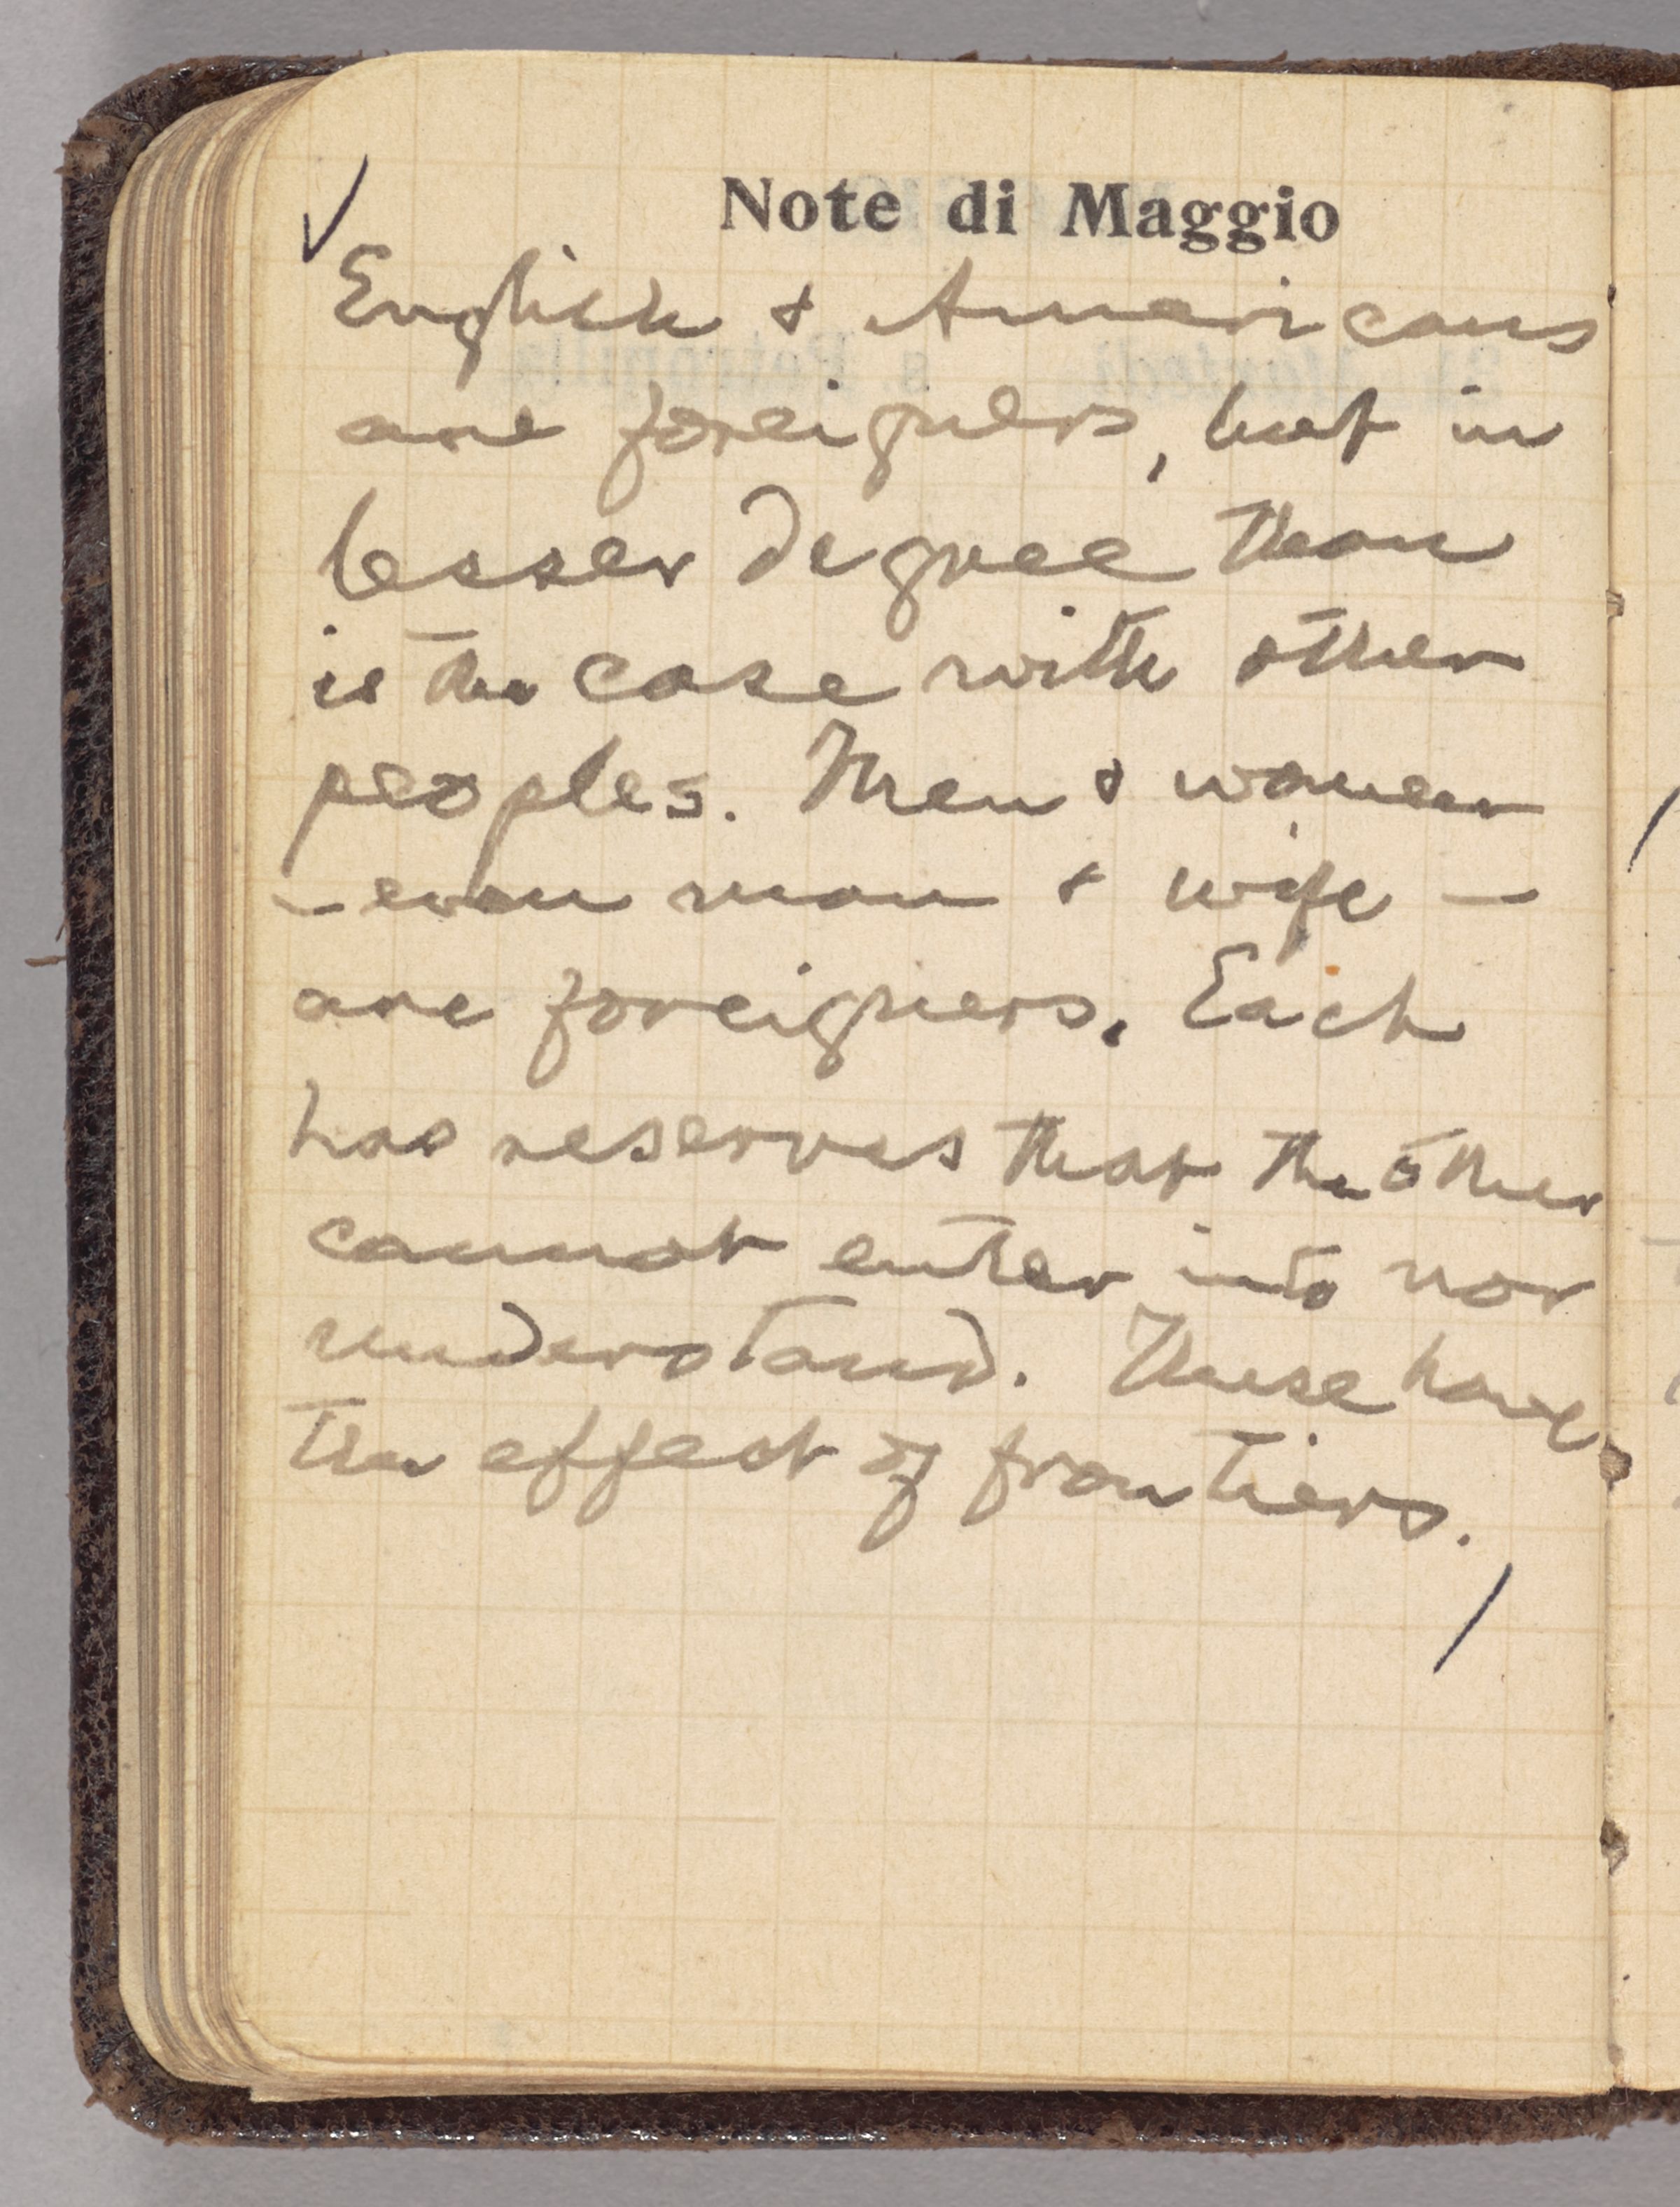 Note di Maggio
English & Americans
are foreigners, but in
lesser degree than
is the case with other
peoples. Men & women
– even man & wife –
are foreigners. Each
has reserves that the other
cannot enter into nor
understand. These have
the effect of frontiers.